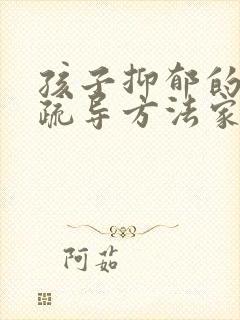 孩子抑郁的
疏导方法家
阿茹